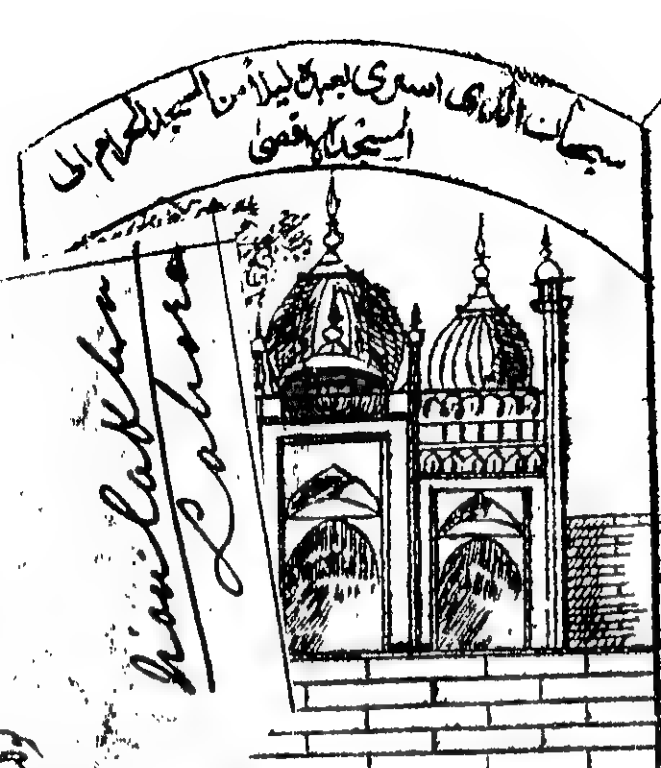 سبحان الذى اسرى بعبده ليلاً من المسجد الحرام الى
المسجد الاقصى
Lahore